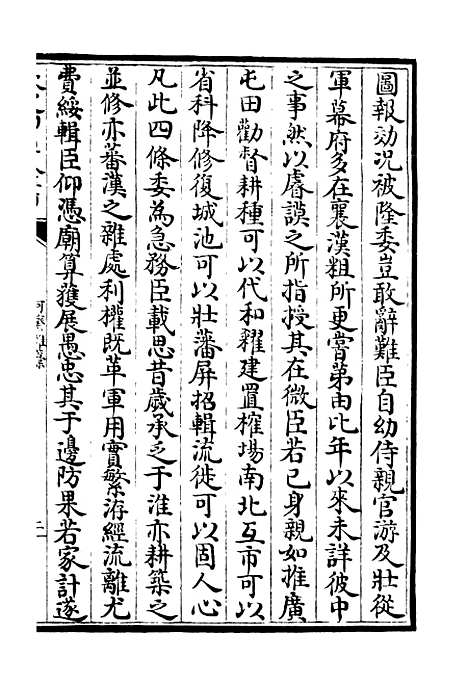 圖報効况被隆委豈敢辭難臣自幼侍親官游及壯從
軍幕府多在襄漢粗所更嘗苐由比年以來未詳彼中
之事然以睿謨之所指授其在微臣若已身親如推廣
屯田勸督耕種可以代和糴建置榷場南北互市可以
省科降修復城池可以壯藩屏招輯流徙可以固人心
凡此四條委為急務臣載思昔歲承乏于淮亦耕築之
並修亦蕃漢之雜處利權既革軍用實繁洊經流離尤
費綏輯臣仰憑廟算獲展愚忠其于邊防果若家計遂
可齋雜藁